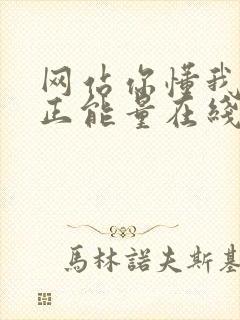 网站你懂我
正能量在线
馬林諾夫斯基